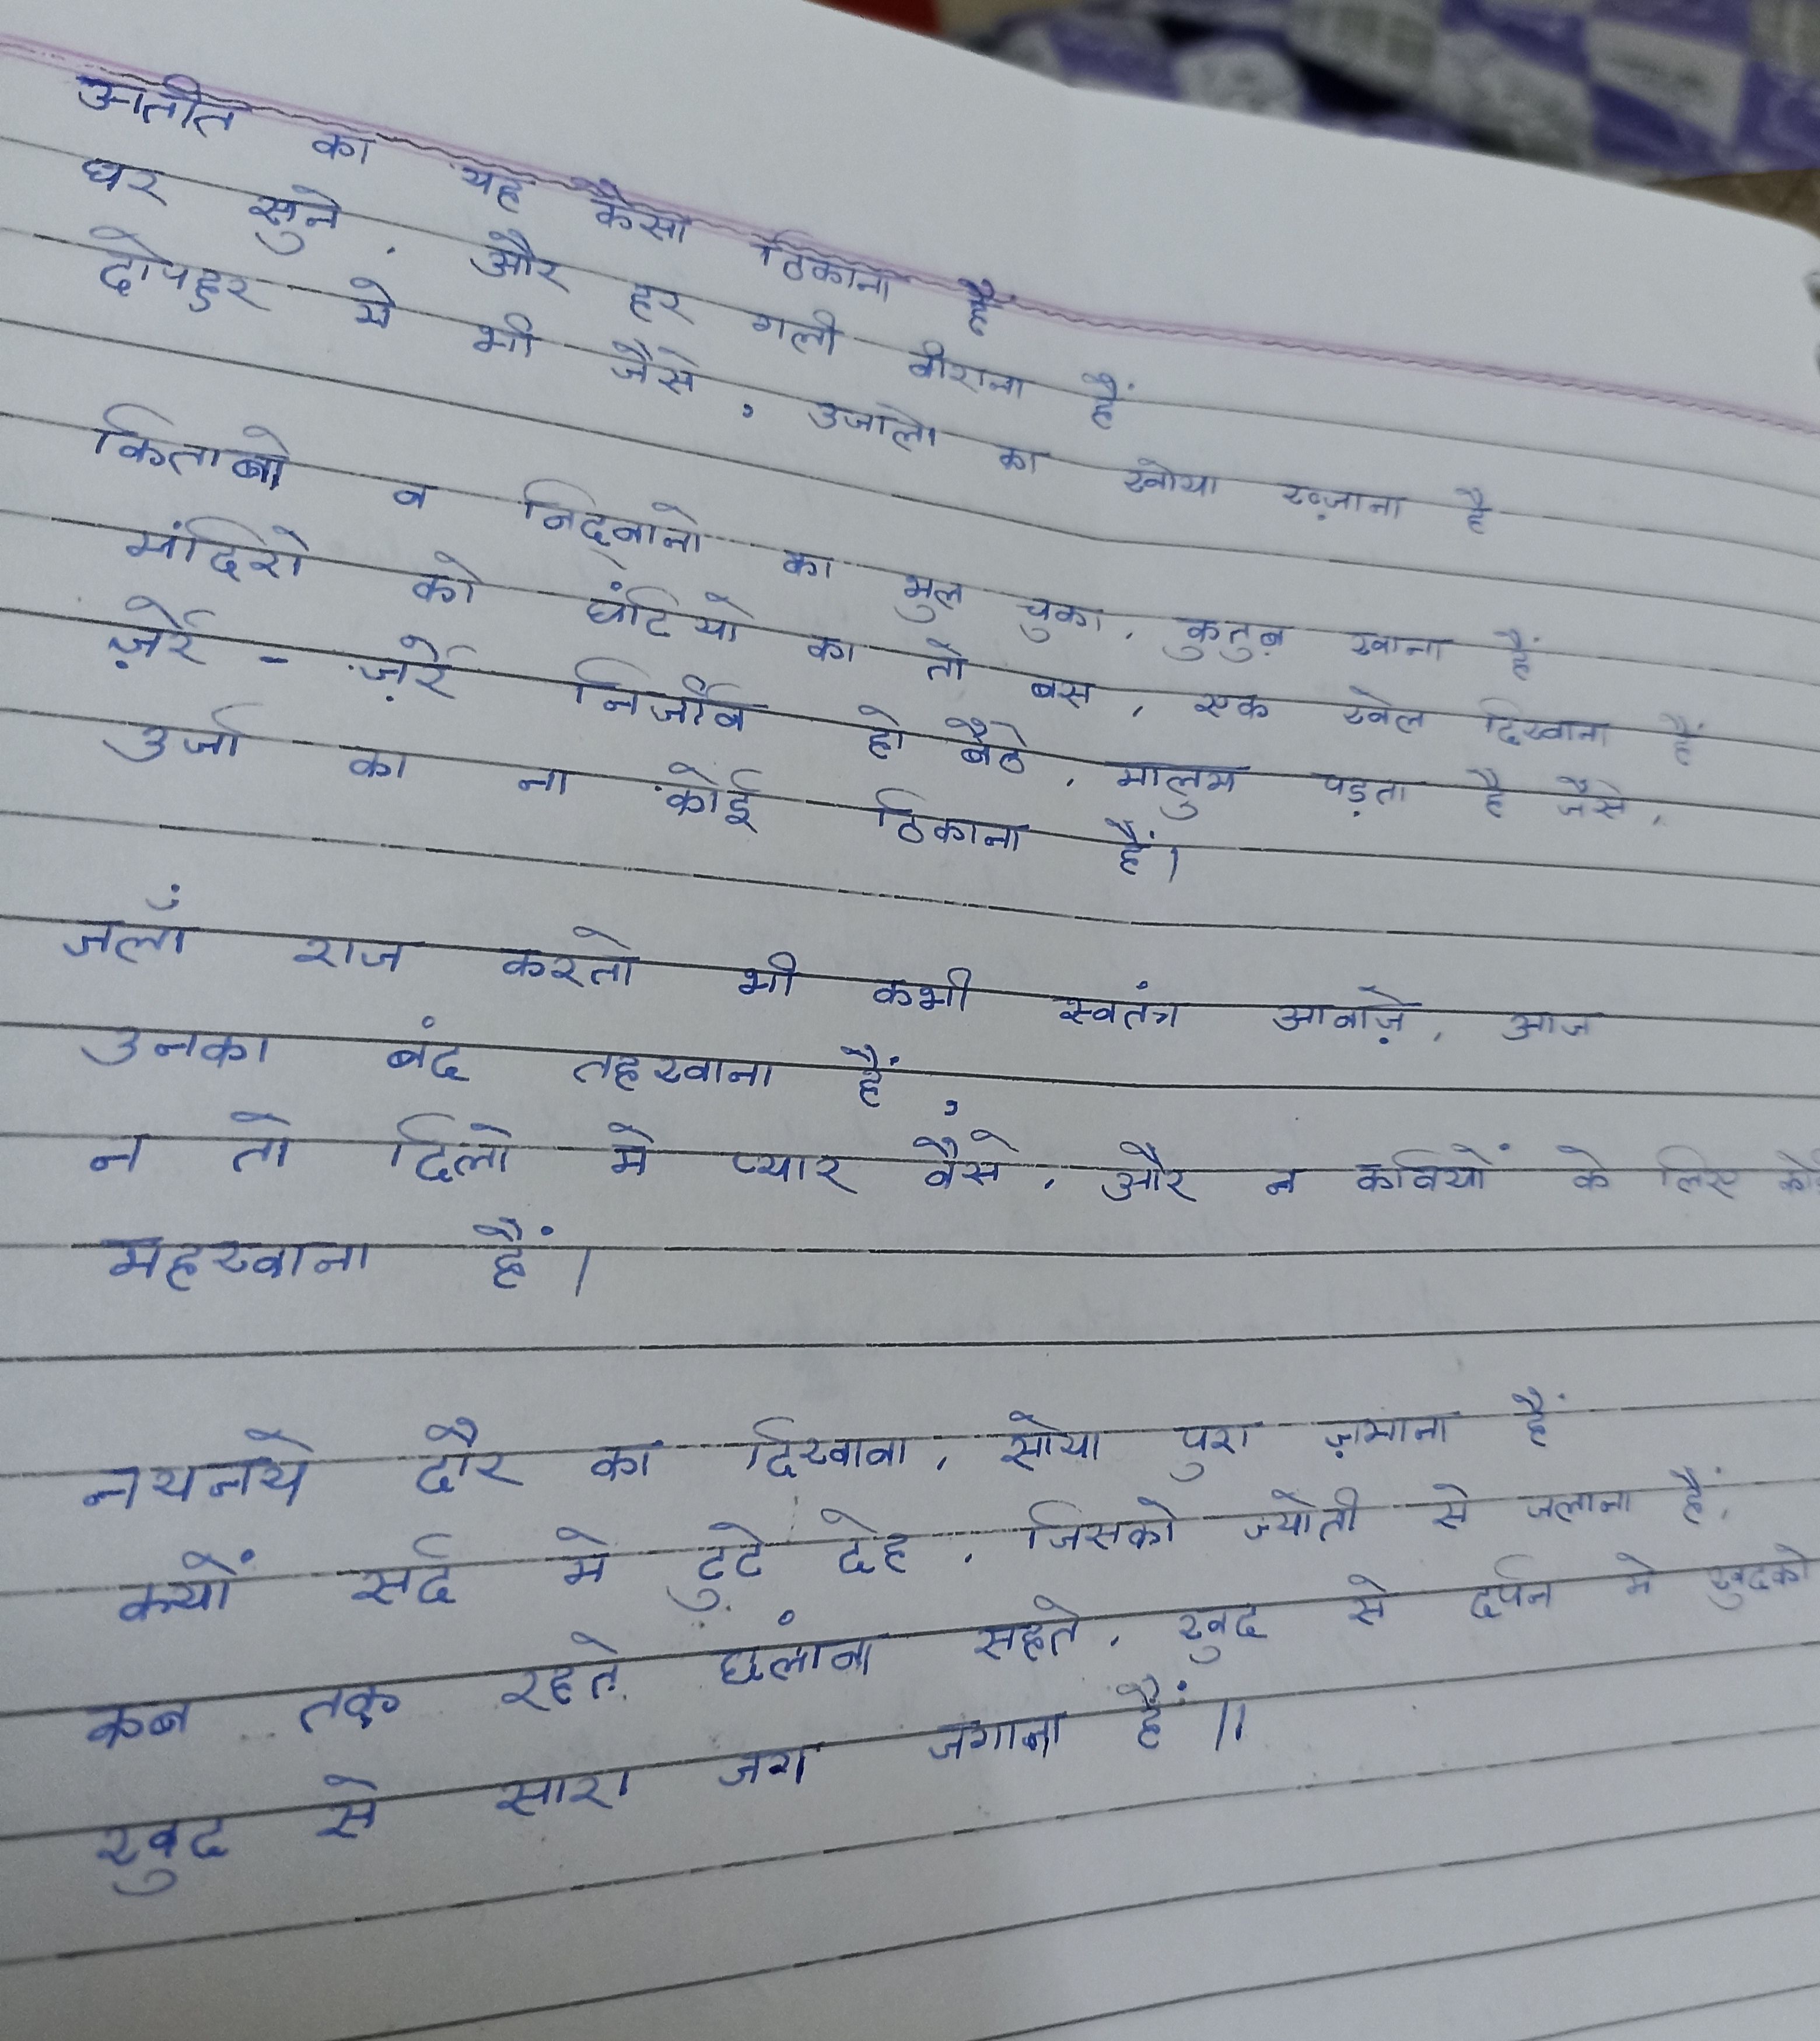 अतीत का यह कैसा ठिकाना हैं
घर सुने, और हर गली वीराना हैं
दोपहर मे भी जैसे, उजाले का खोया खज़ाना है
किताबो व विद्वानो का भुल चुका, कुतुब खाना हैं
मंदिरो को घंटियो का तो बस, एक खेल दिखाना हैं
ज़र्रे - ज़र्रे निर्जीव हो बैठे, मालुम पड़ता है जैसे,
उर्जा का ना कोई ठिकाना हैं।
राज करतो भी कभी स्वतंत्र आवाज़े, आज
उनका बंद तहखाना हैं,
न तो दिलो मे प्यार वैसे, और न कवियों के लिए
महखाना हैं।
नयनये दौर का दिखावा, सोया पुरा ज़माना हैं
क्यों सर्द मे टुटे देह, जिसको ज्योती से जलाना हैं,
कब तक रहते सहते, खुद से दर्पन मे खुदको
खुद से सारा जग जगाना हैं ॥